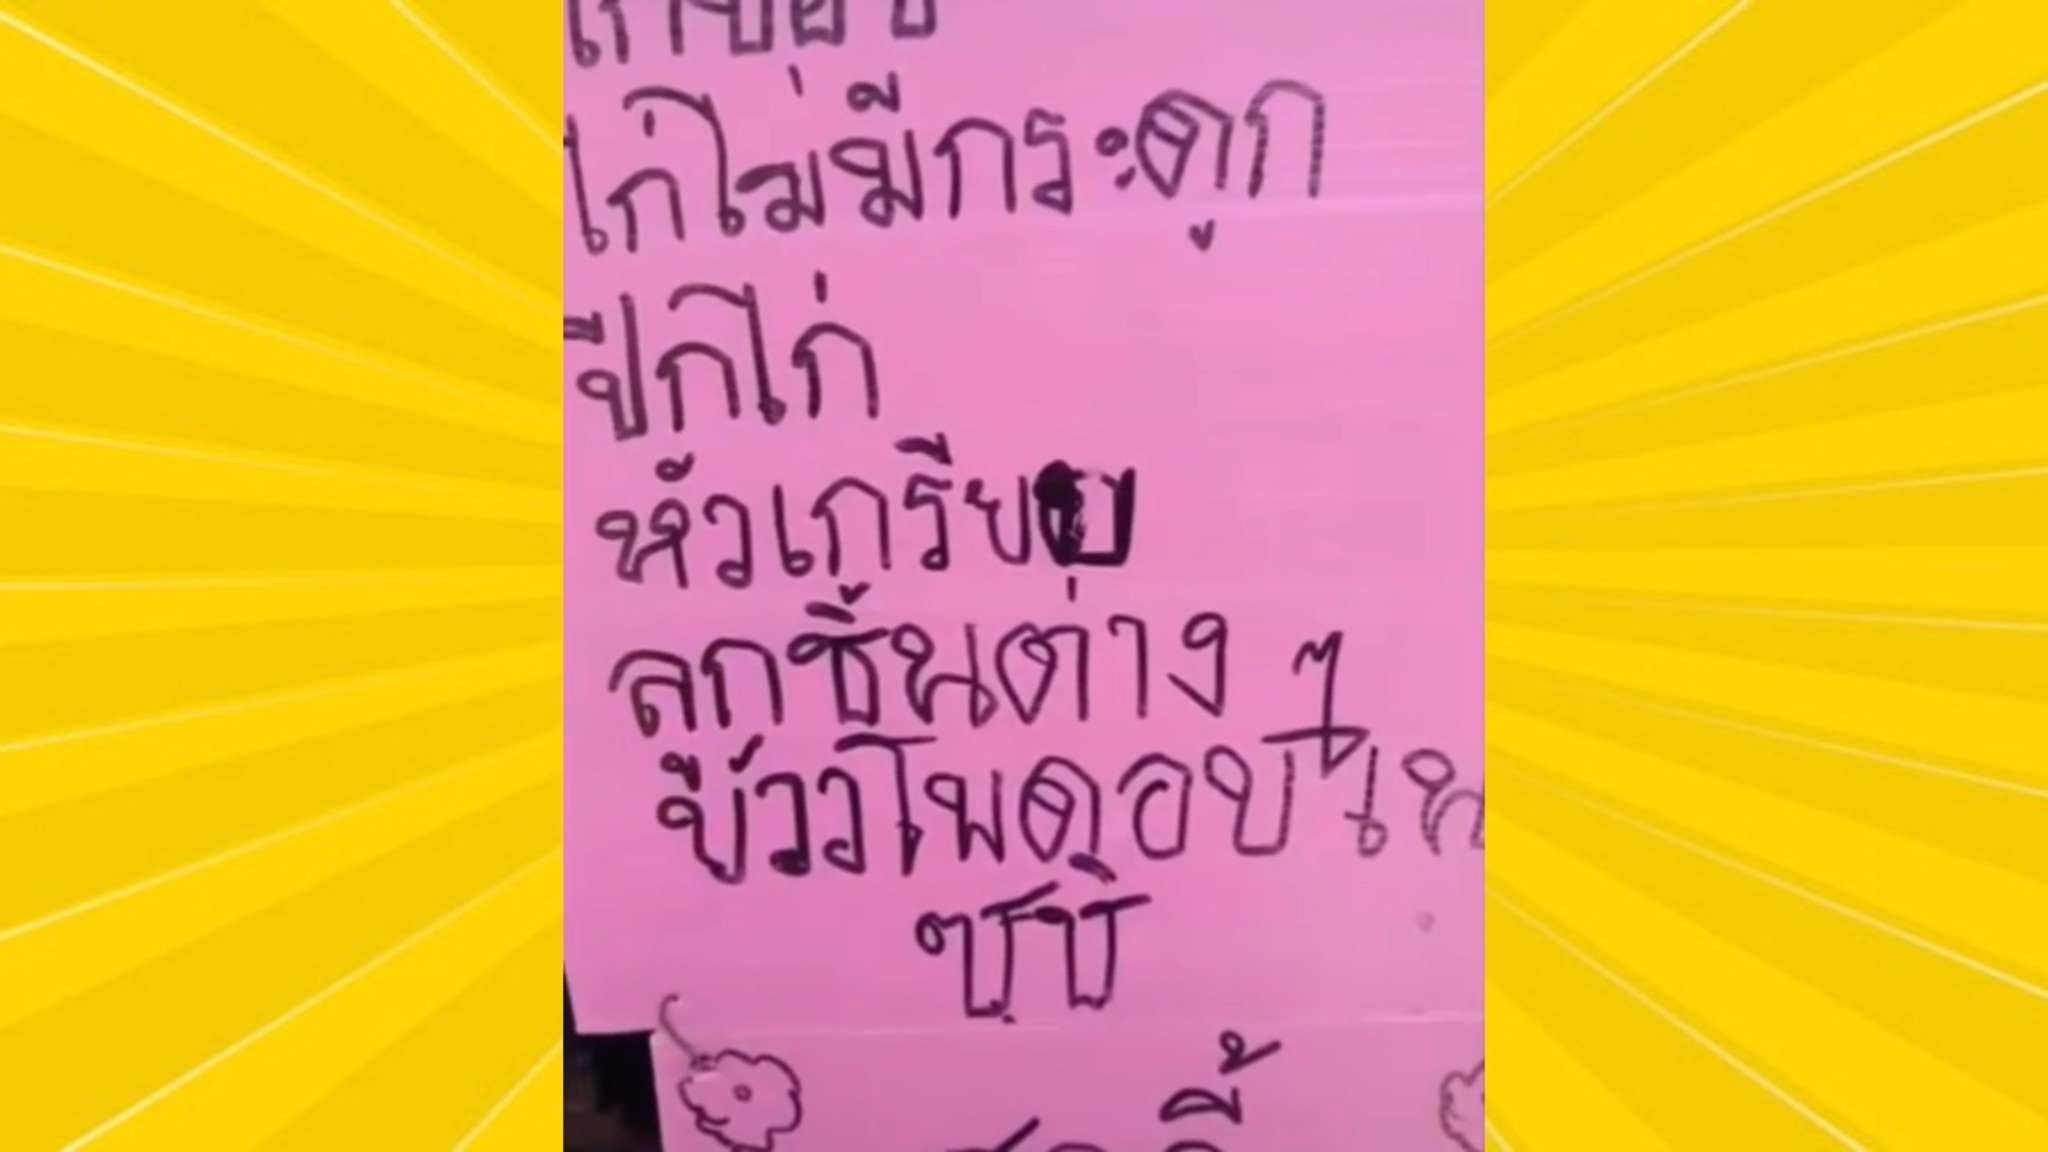 ไก่ไม่มีกระดูก
ปีกไก่
หัวเกรียบ
ลูกชิ้นต่าง ๆ
ข้าวโพดอบเ
ซูชิ